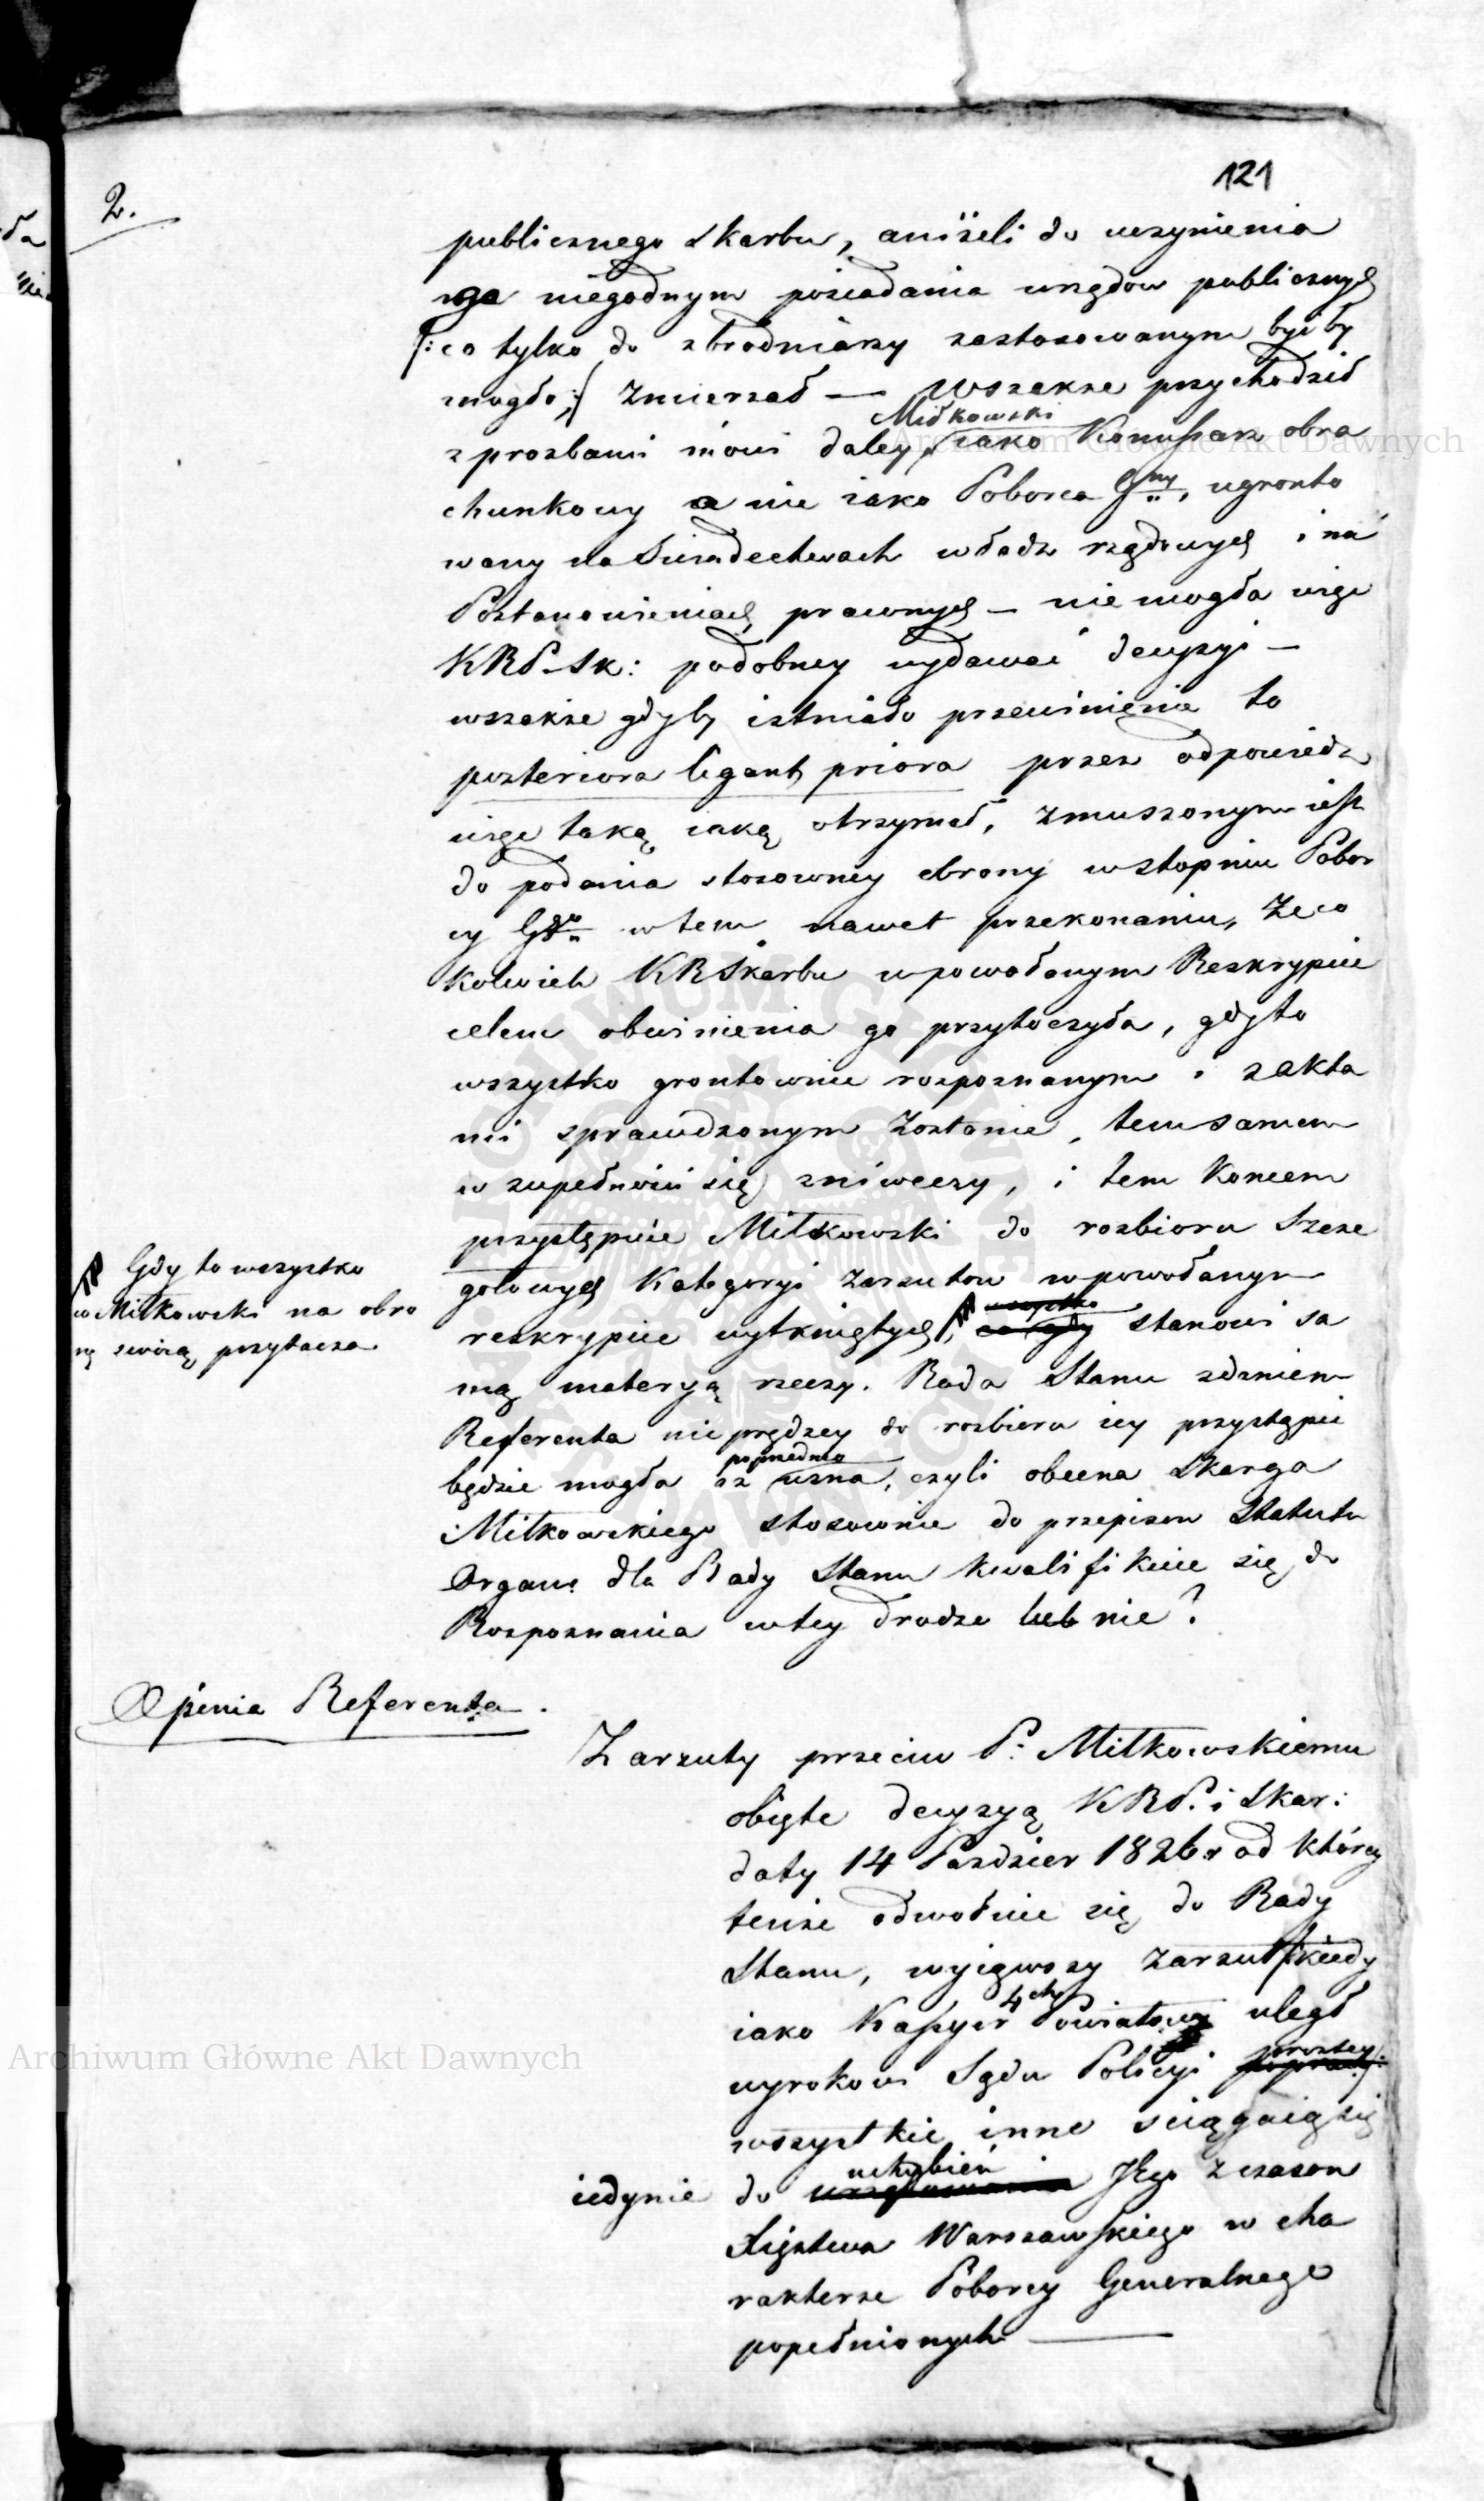 121
2.
publicznego Skarbu, aniżeli do uczynienia
go niegodnym posiadania urzędow publicznych
/:co tylko do zbrodniarzy zastosowanym być by
mogło:/ zmierzał — Wszakże przychodził
Miłkowski
z prozbami mówi daley, iako Kommissarz obra
chunkowy a nie iako Poborca Gny, ugrunto
wany na Swiadectwach władz rządowych i na
Postanowieniach prawnych — nie mogła więc
KRP. Sk: podobney wydawać decyzyi —
wszakże gdyby istniało przewinienie to
posteriora ligant priora przez odpowiedz
więc taką iaką otrzymał, zmuszonym iest
do podania stosowney obrony w stopniu Pobor
cy Ggo w tem nawet przekonaniu, że co
kolwiek KRSkarbu w powołanym Reskrypcie
celem obwinienia go przytoczyła, gdy to
wszystko grontownie rozpoznanym i z akta
mi sprawdzonym zostanie, tem samem
w zupełności się zniweczy, i tem koncem
przystępuie Miłkowski do rozbioru Szcze
gołowych Kategoryi zarzutow w powołanym
Gdy to wszystko
co Miłkowski na obro
nę swoią przytacza
wszystko
reskrypcie wytkniętych, co gdy stanowi sa
mą materyą rzeczy. Rada Stanu zdaniem
Referenta nie prędzey do rozbioru iey przystąpić
poprzednio
będzie mogła aż uzna, czyli obecna Skarga
Miłkowskiego stosownie do przepisow Statutu
Organ: dla Rady Stanu kwalifikuie się do
Rozpoznania w tey drodze lub nie?
Opinia Referenta.
Zarzuty przeciw P. Miłkowskiemu
obięte decyzyą KRP. i Skar:
daty 14 Pazdzier 1826 r od którey
tenże odwołuie się do Rady
Stanu, wyiąwszy zarzut kiedy
iako Kassyer 4ch Powiatowy uległ
wyrokowi Sądu Policyi prostey
wszystkie inne sciągaią się
uchybień
iedynie do Jego z czasow
Xięstwa Warszawskiego w cha
rakterze Poborcy Generalnego
popełnionych —
Archiwum Główne Akt Dawnych
Archiwum Główne Akt Dawnych